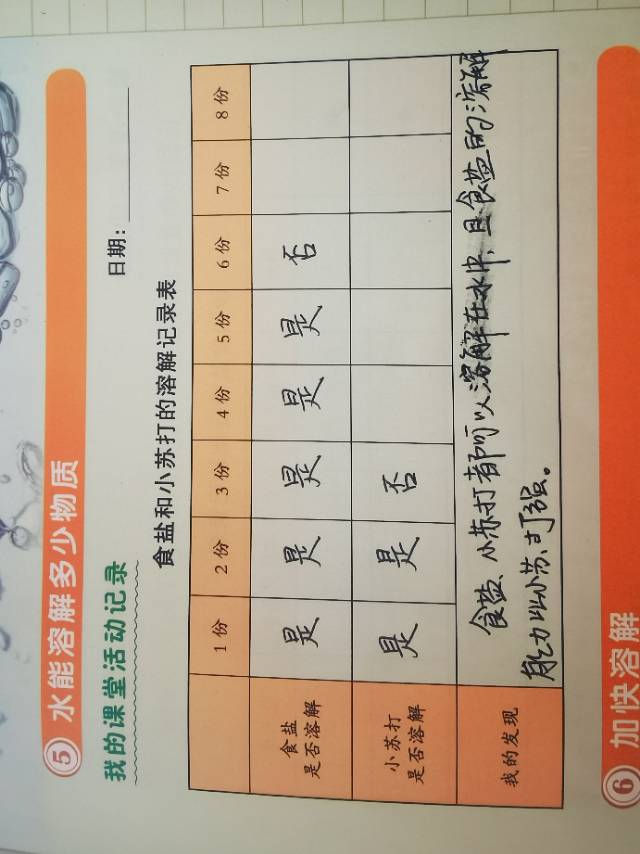 5 水能溶解多少物质
我的课堂活动记录 日期：
食盐和小苏打的溶解记录表
1份 2份 3份 4份 5份 6份 7份 8份
食盐
是否溶解 是 是 是 是 是 否
小苏打
是否溶解 是 是 否
我的发现 食盐、小苏打都可以溶解在水中，且食盐的溶解
能力比小苏打强。
6 加快溶解